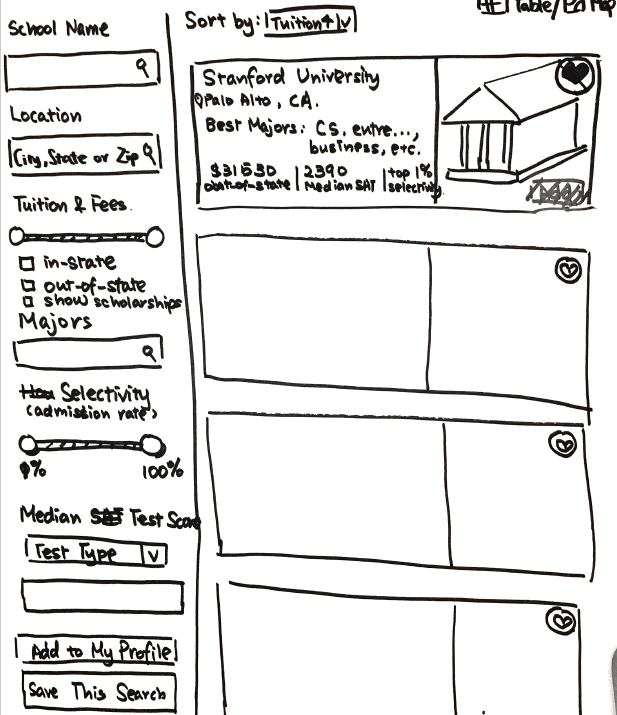 School Name
Location
City, State or Zip
Tuition & Fees
in-state
out-of-state
show scholarships
Majors
Selectivity
(admission rate)
0%
100%
Median Test Score
Test Type
Add to My Profile
Save This Search
Sort by: Tuition
Table/ Map
Stanford University
Palo Alto, CA.
Best Majors: CS, entre...,
business, etc.
$31530
out-of-state
2390
Median SAT
top 1%
selectivity